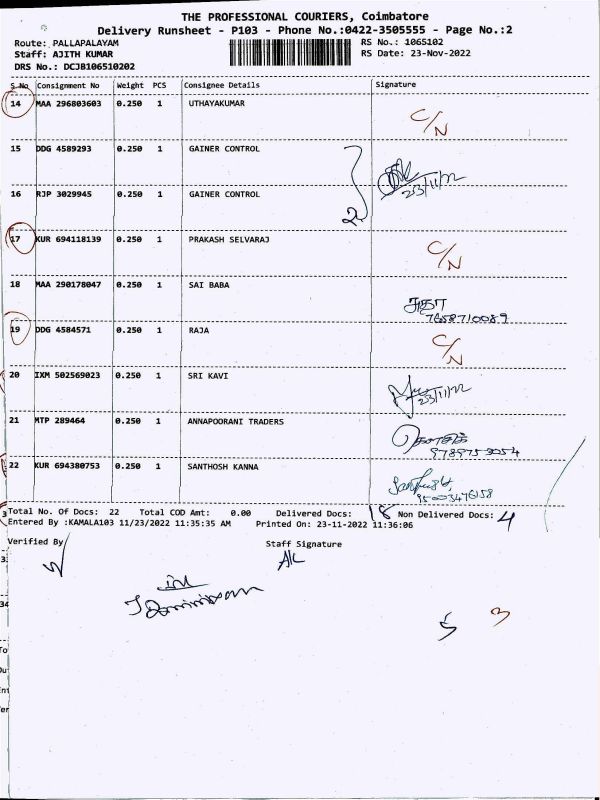 THE PROFESSIONAL COURIERS, Coimbatore
Delivery Runsheet - P103 - Phone No.:0422-3505555 - Page No.:2
Route: PALLAPALAYAM
RS No.: 1065102
Staff: AJITH KUMAR
RS Date: 23-Nov-2022
DRS No.: DCJB106510202
S.No Consignment No Weight PCS Consignee Details Signature
14 MAA 296803603 0.250 1 UTHAYAKUMAR C/N
15 DDG 4589293 0.250 1 GAINER CONTROL
23/11/22
16 RJP 3029945 0.250 1 GAINER CONTROL
2
17 KUR 694118139 0.250 1 PRAKASH SELVARAJ C/N
18 MAA 290178047 0.250 1 SAI BABA
7658710089
19 DDG 4584571 0.250 1 RAJA C/N
20 IXM 502569023 0.250 1 SRI KAVI
23/11/22
21 MTP 289464 0.250 1 ANNAPOORANI TRADERS
9789753054
22 KUR 694380753 0.250 1 SANTHOSH KANNA
Total No. Of Docs: 22 Total COD Amt: 0.00 Delivered Docs: 18 Non Delivered Docs: 4
Entered By :KAMALA103 11/23/2022 11:35:35 AM Printed On: 23-11-2022 11:36:06
Verified By
Staff Signature
5 3